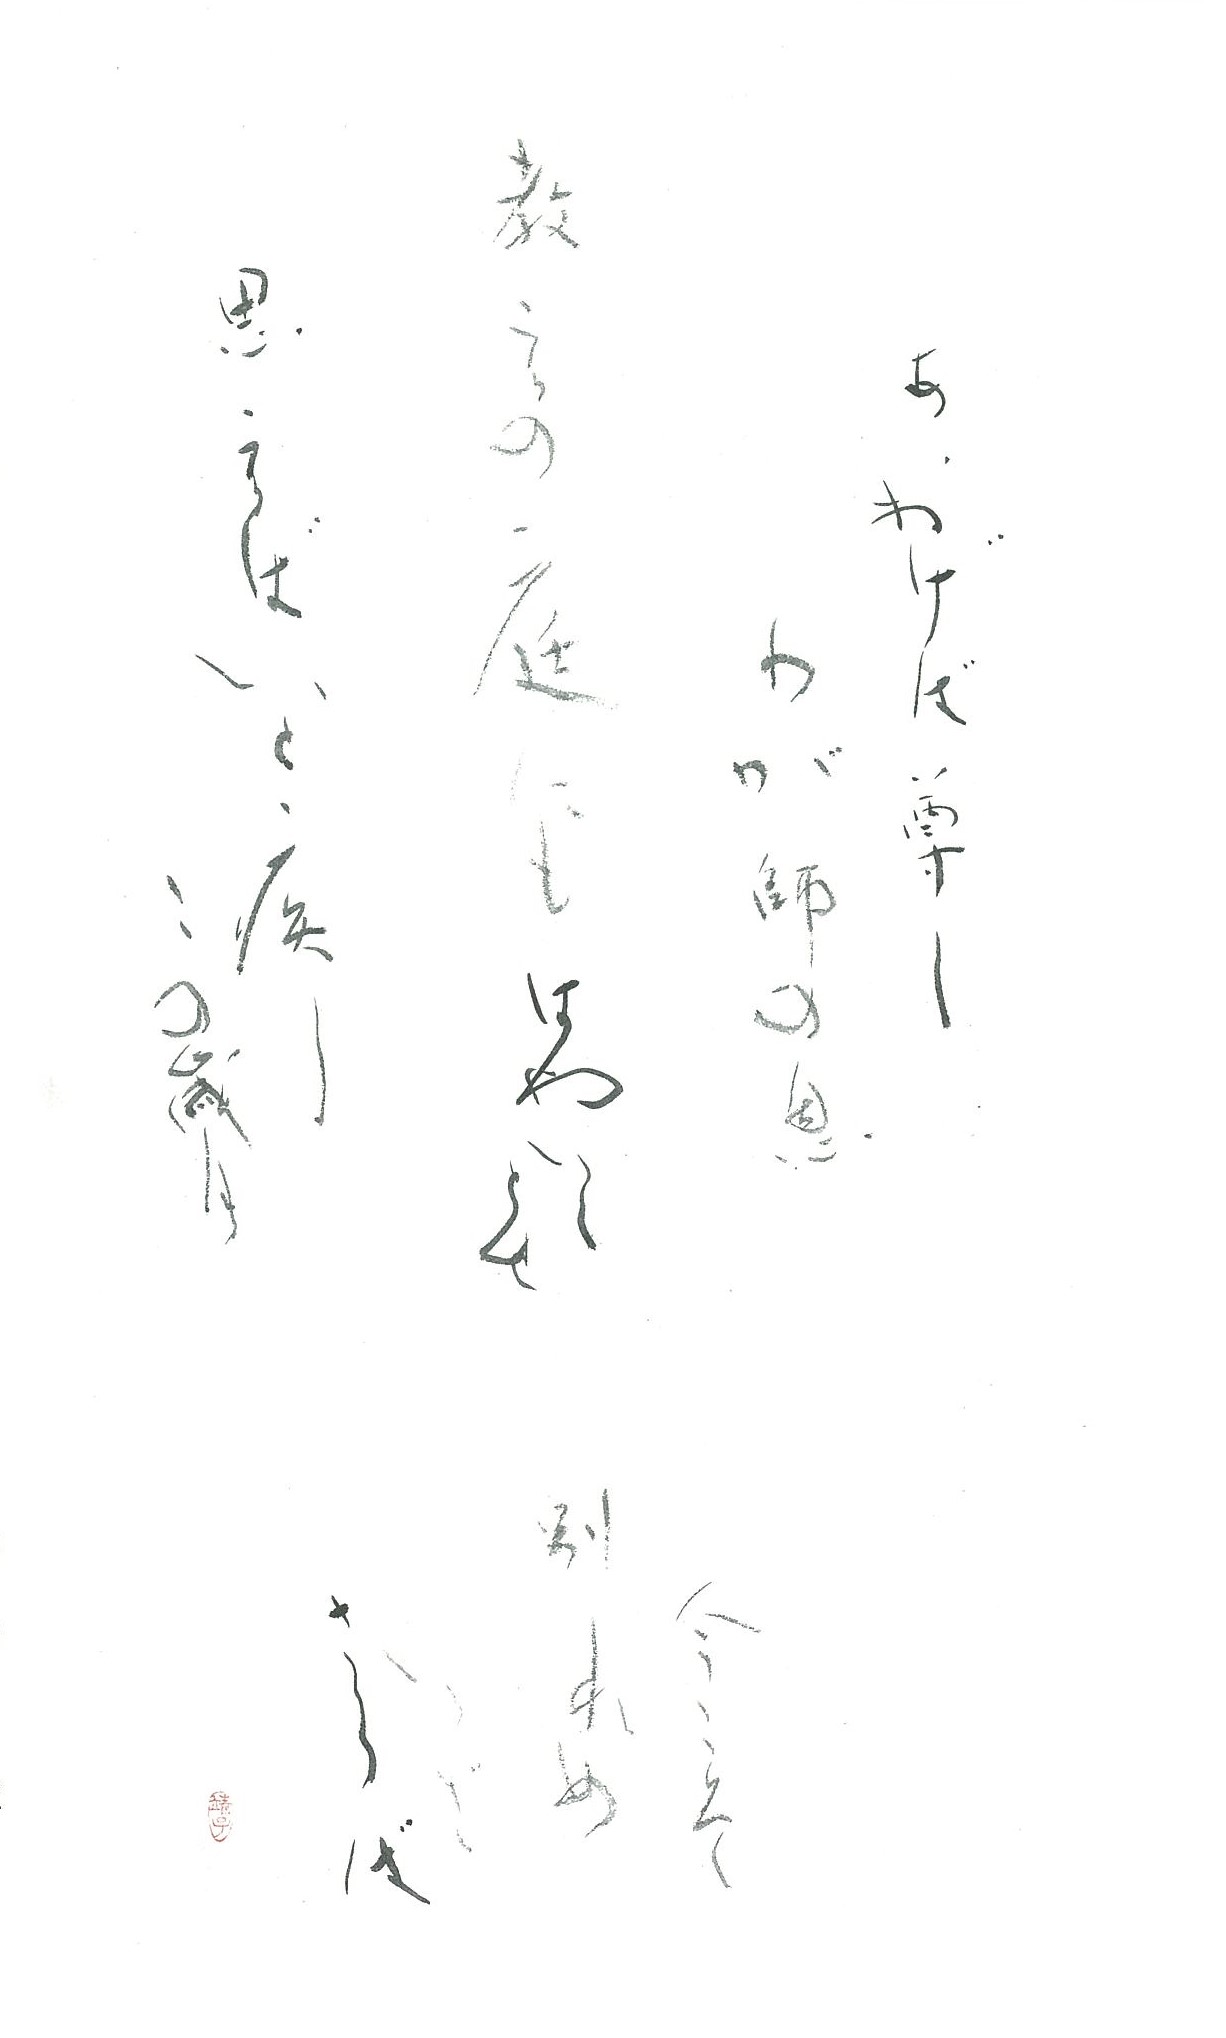 あおげば尊し
わが師の恩
教えの庭にもはやいくとせ
思えばいと疾し
この歳月
今こそ
別れめ
いざ
さらば